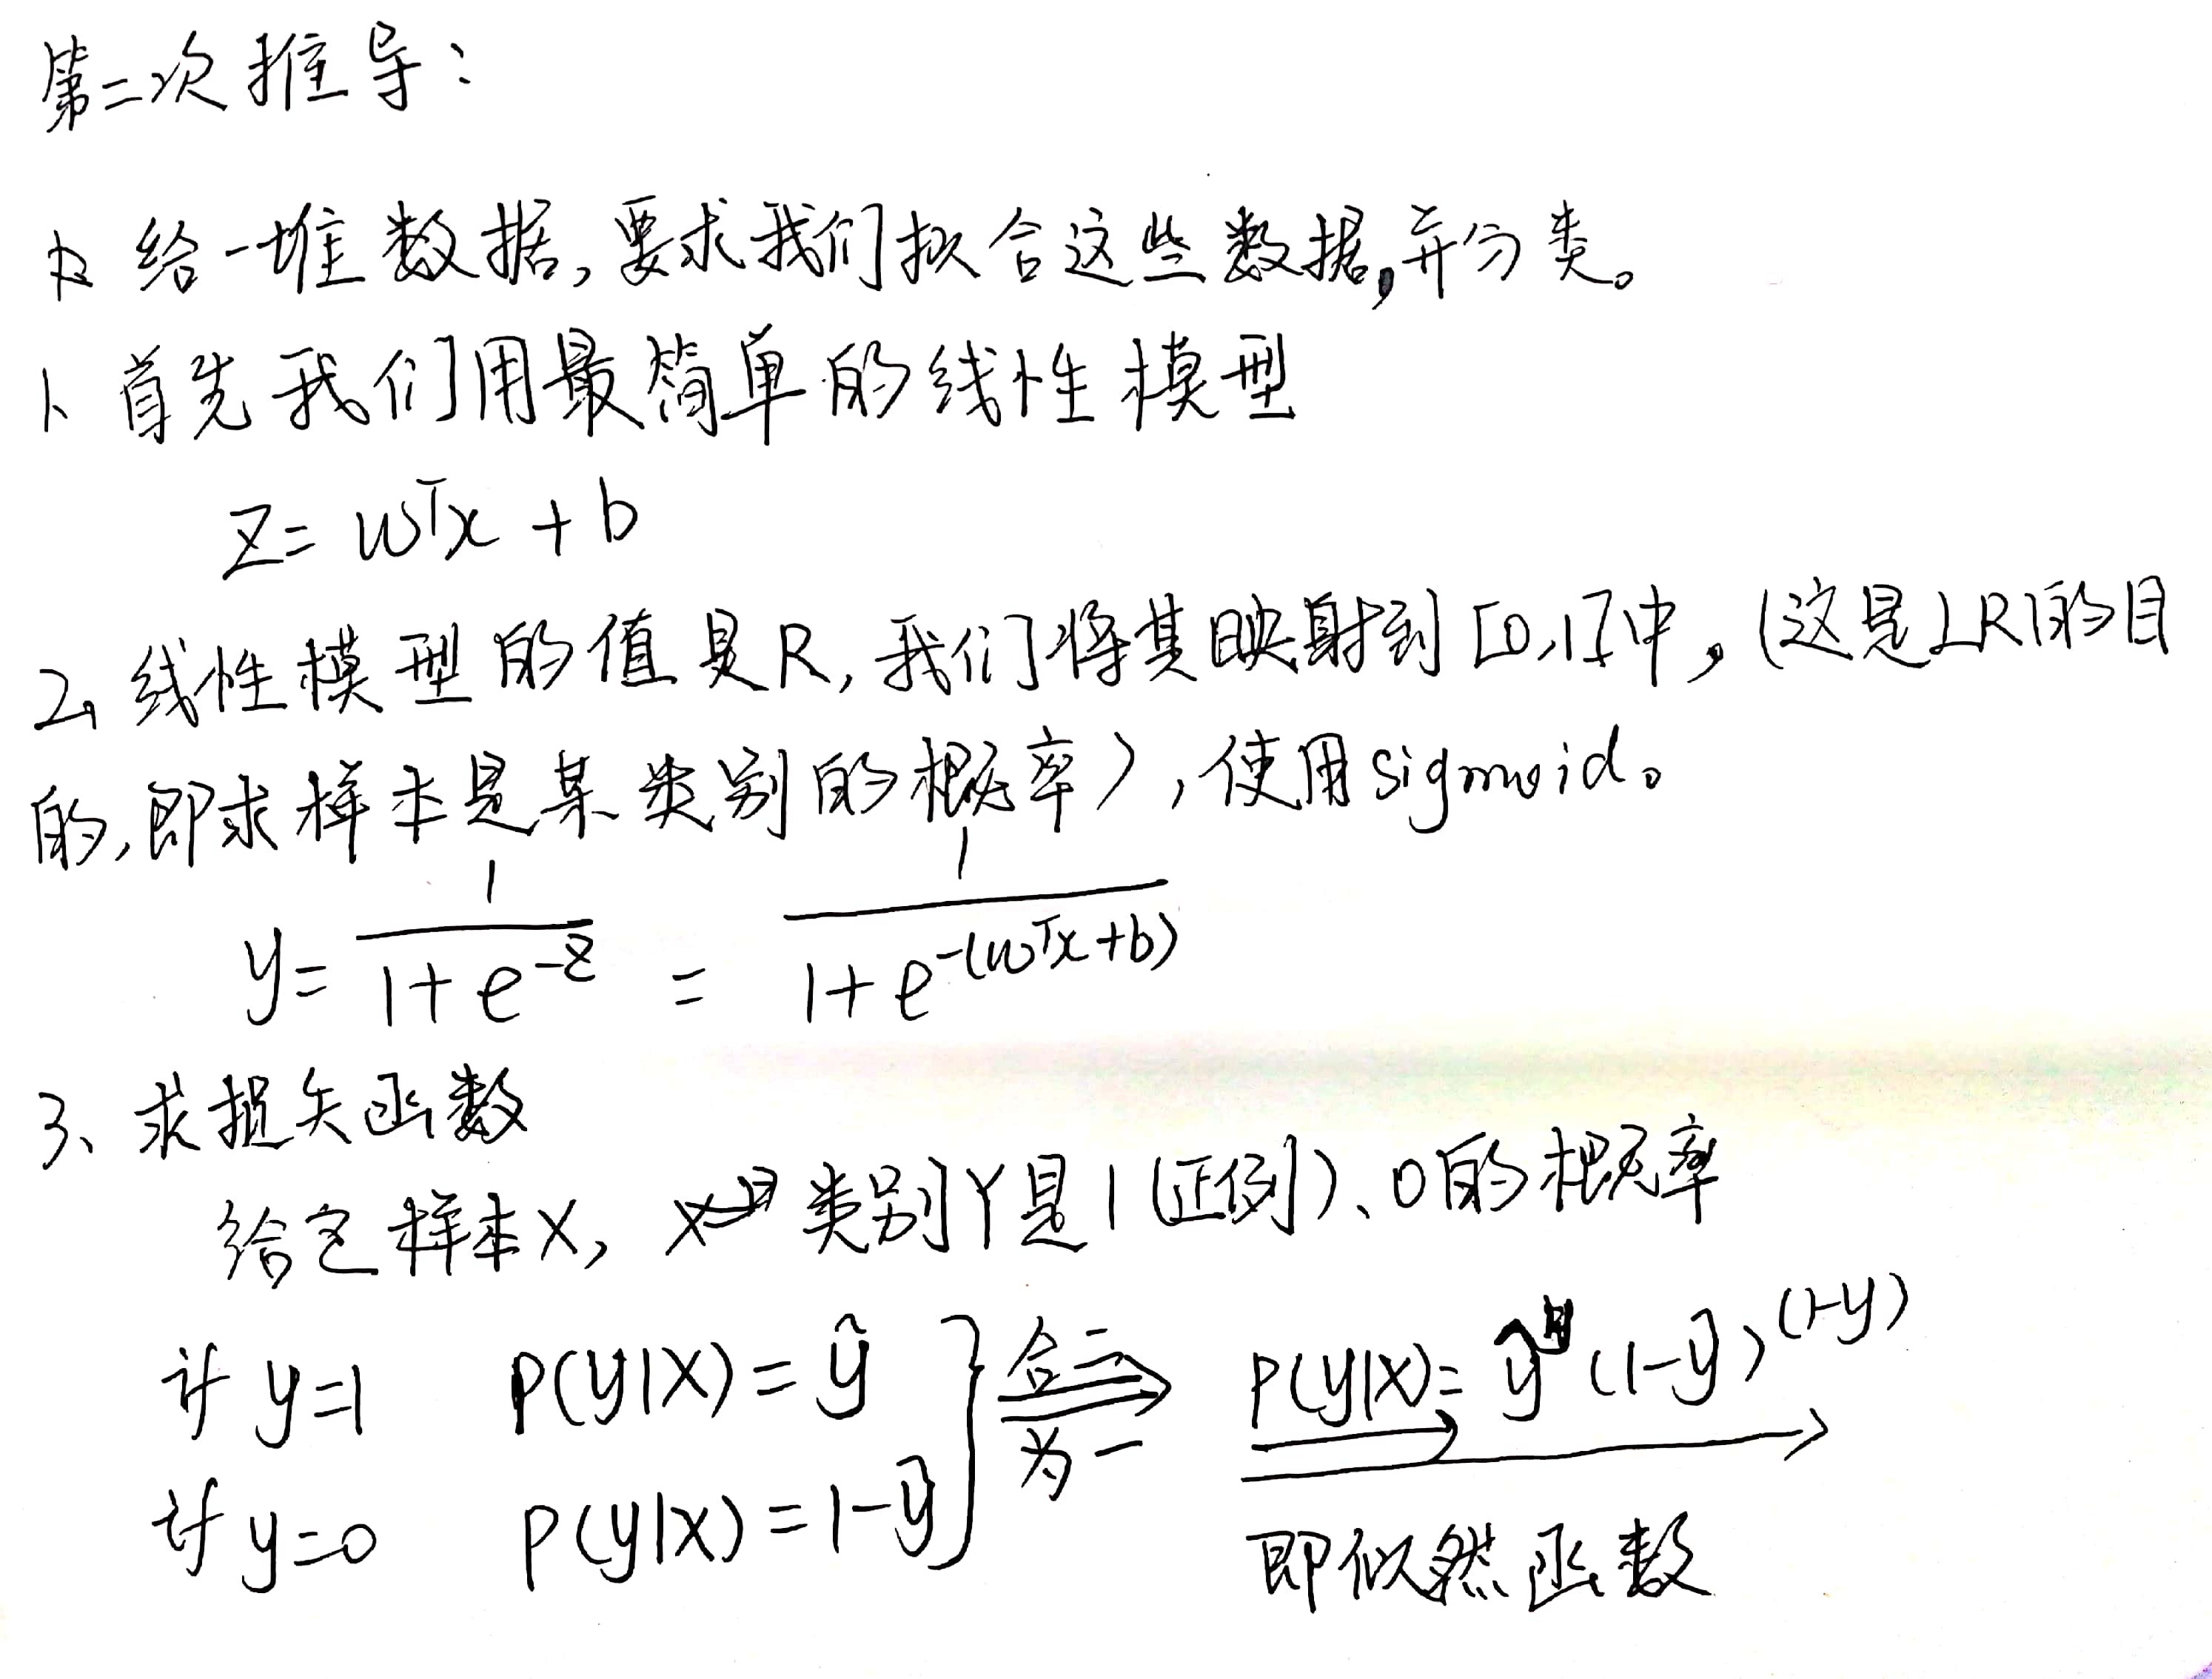 第二次推导：
给一堆数据，要求我们拟合这些数据，并分类。
1、首先我们用最简单的线性模型
z = wᵀx + b
2、线性模型的值是R，我们将其映射到[0,1]中，（这是LR的目
的，即求样本是某类别的概率），使用sigmoid。
y = 1/(1+e^{-z}) = 1/(1+e^{-(wᵀx+b)})
3、求损失函数
给定样本X，类别Y是1(正例)、0的概率
if y=1 P(y|X) = ŷ
if y=0 P(y|X) = 1-ŷ
合二为一
P(y|X) = ŷ^y (1-ŷ)^(1-y)
即似然函数